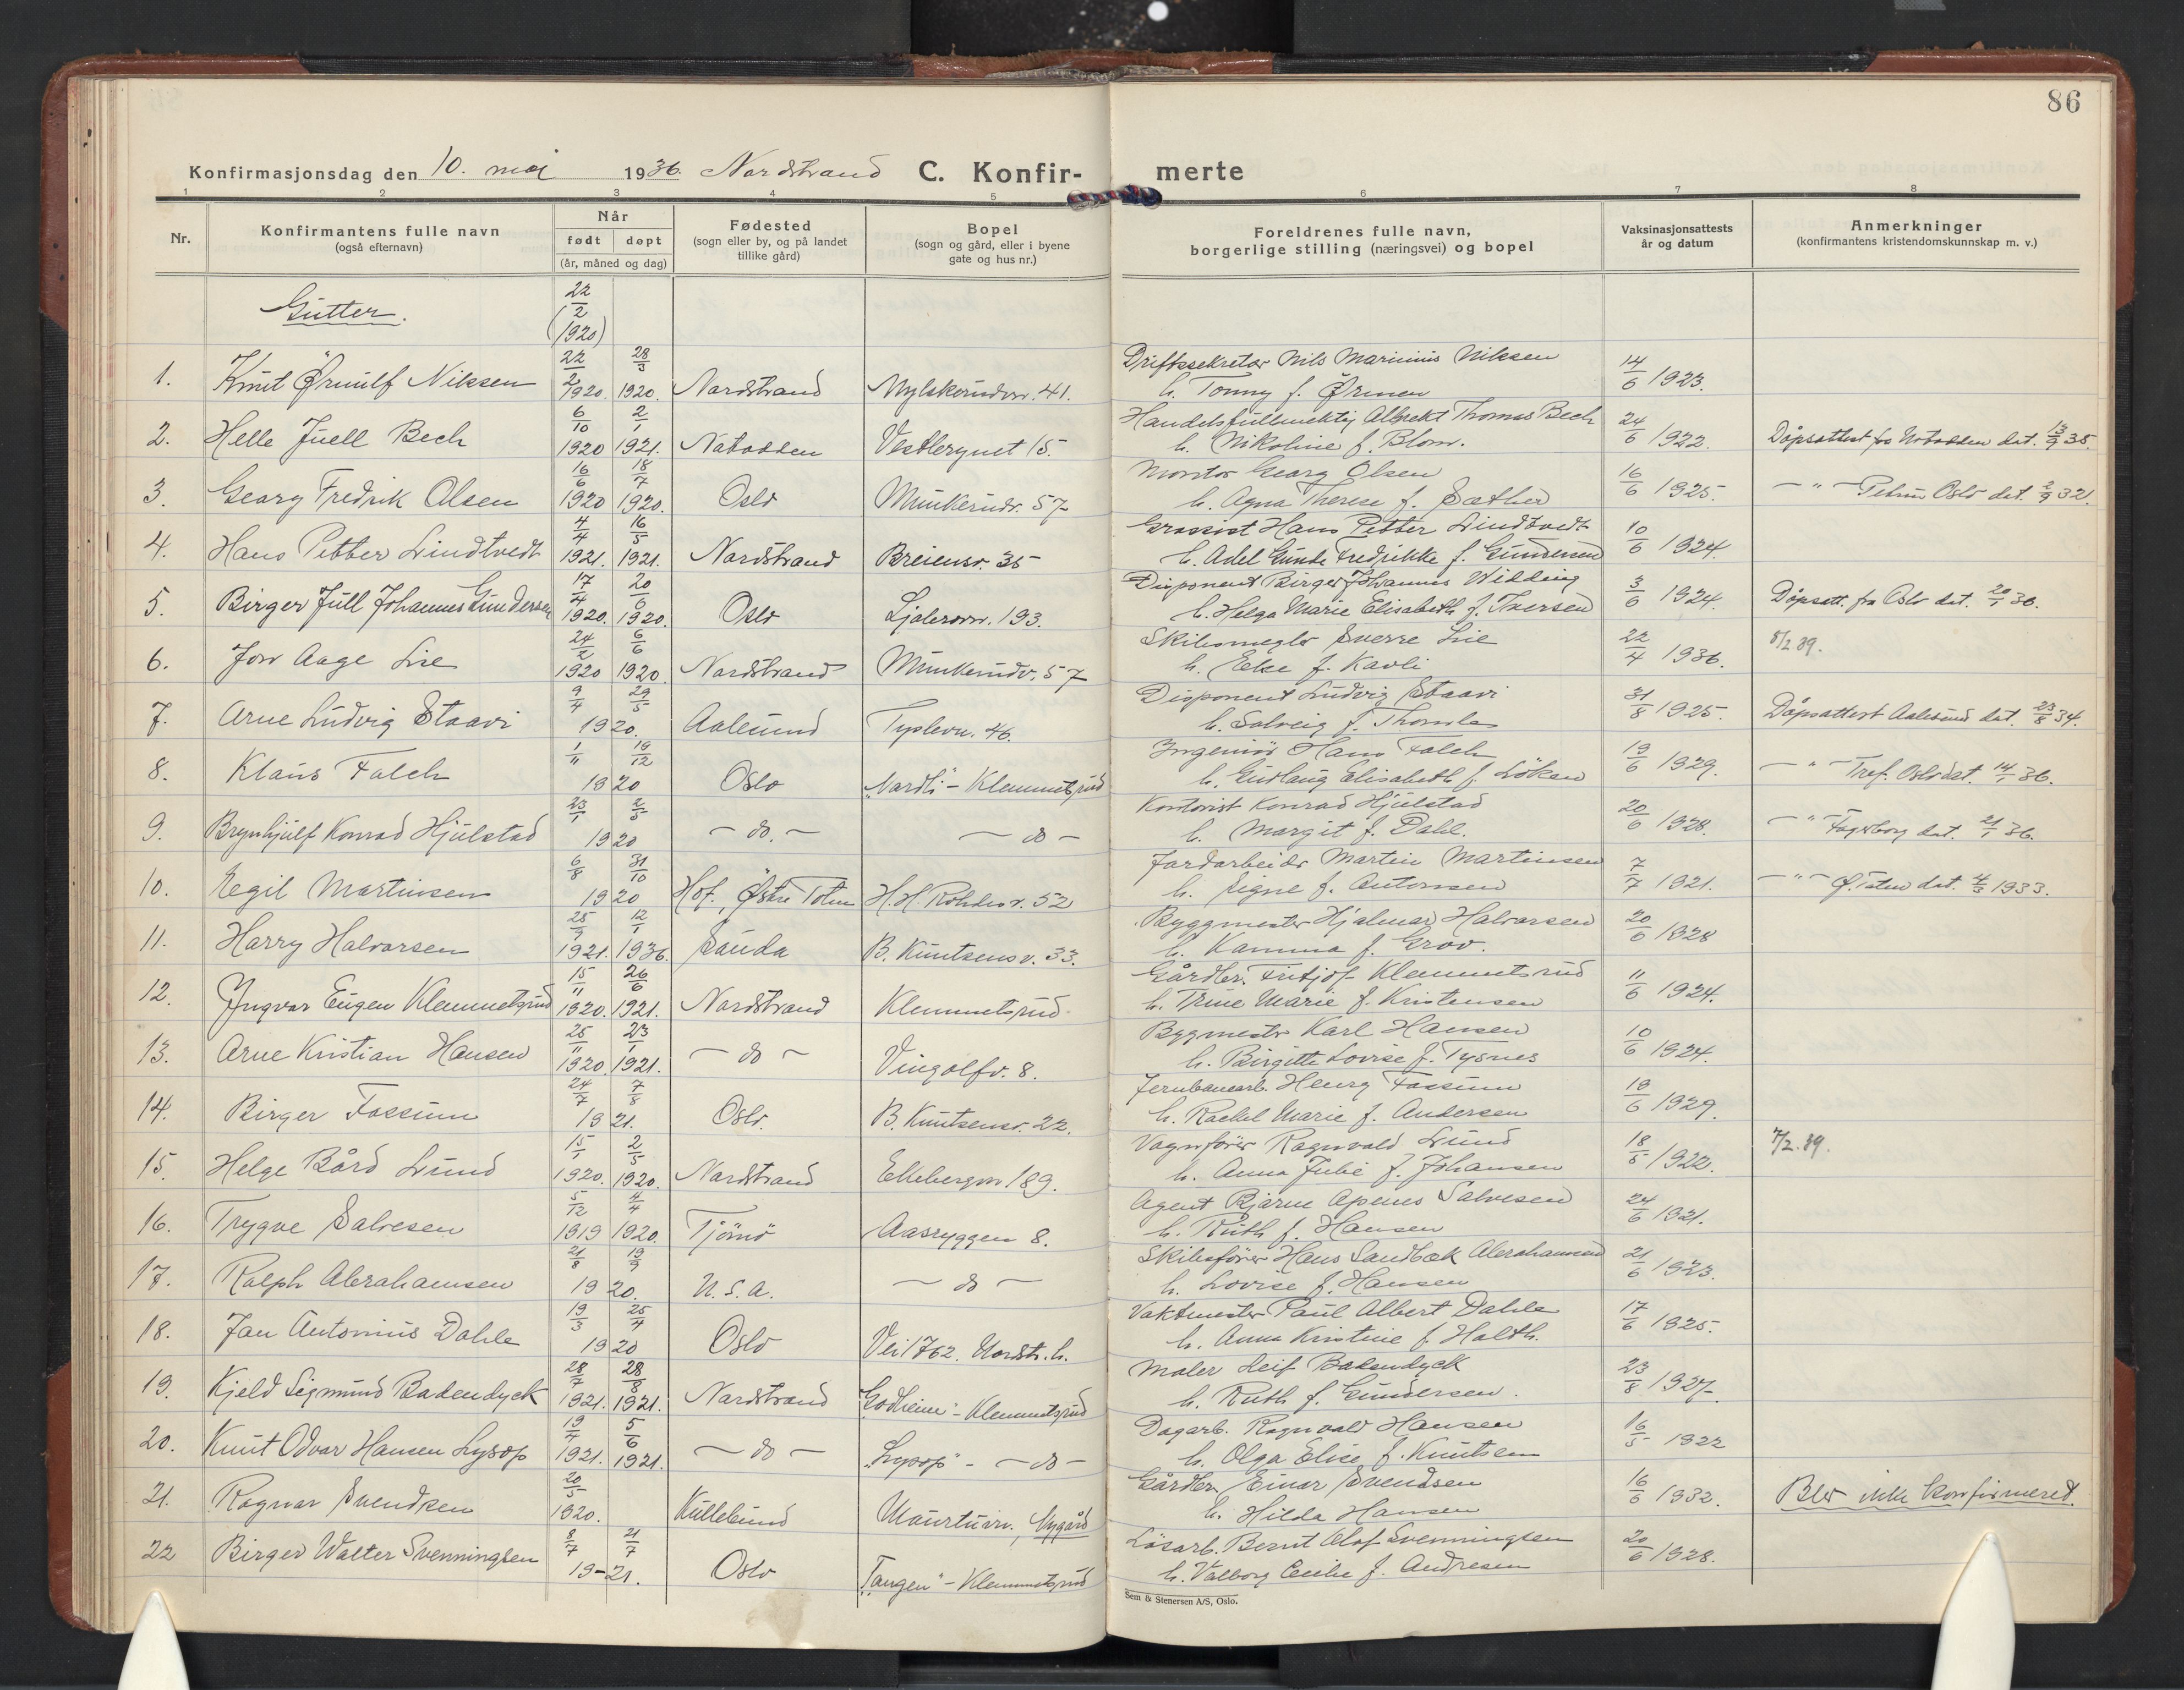 86
Konfirmasjonsdag den 10. mai 1936. Nordstrand C. Konfir- merte
1 2 3 4 5 6 7 8
Nr.
Konfirmantens fulle navn
(også efternavn)
Når
født døpt
(år, måned og dag)
Fødested
(sogn eller by, og på landet
tillike gård)
Bopel
(sogn og gård, eller i byene
gate og hus nr.)
Foreldrenes fulle navn,
borgerlige stilling (næringsvei) og bopel
Vaksinasjonsattests
år og datum
Anmerkninger
(konfirmantens kristendomskunnskap m. v.)
Gutter. 22/2 (1920)
1. Knut Ørnulf Nilsen 22/2 1920. 28/3 1920. Nordstrand 41. Driftssekretær Nils Marinius Nilsen
h. Tonny f. Ørmen 14/6 1923.
2. Helle Juell Bech 6/10 1920 2/1 1921. Notodden Vestbrynet 15. Handelsfullmektig Albrekt Thomas Bech
h. Nikoline f. Blom. 24/6 1922. Dåpsattest fra Notodden dat. 13/9 35.
3. Georg Fredrik Olsen 16/6 1920 18/7 1920. Oslo Munkerudv. 57 Montør Georg Olsen
h. Agna Therese f. Sæther 16/6 1925. - " - Petrus Oslo dat. 2/9 32.
4. Hans Petter Lindtvedt 4/4 1921. 16/5 1921. Nordstrand Breiensv. 35 Grossist Hans Petter Lindtvedt
h. Adel Gunda Fredrikke f. Gundersen 10/6 1924.
5. Birger Jull Johannes Gundersen 17/4 1920. 20/6 1920. Oslo Ljabrovn. 193. Disponent Birger Johannes Widding
h. Helga Marie Elisabeth f. Iversen 3/6 1924. Dåpsatt. fra Oslo dat. 20/1 36.
6. Jon Aage Lie 24/2 1920 6/6 1920. Nordstrand Munkerudv. 57 Skibsmegler Sverre Lie
h. Else f. Kavli 22/4 1936. 5/2 39.
7. Arne Ludvig Staavi 9/4 29/5 1920. Aalesund 46. Disponent Ludvig Staavi
h. Solveig f. 31/8 1925. Dåpsattest Aalesund dat. 23/8 34.
8. Klaus Falch 1/11 19/12 1920 Oslo "Nordli" - Klemmetsrud Ingeniør Hans Falch
h. Gudlaug Elisabeth f. Löken 19/6 1929. - " - Tref. Oslo dat. 14/1 36.
9. Brynhjulf Konrad Hjulstad 23/1 2/5 1920 - do. - - do - Kontorist Konrad Hjulstad
h. Margit f. Dahl. 20/6 1928. - " - Fagerborg dat. 21/1 36.
10. Egil Martinsen 6/8 31/10 1920 Hof, Østre Toten H. H. Rohdes v. 52 Jordarbeider Martin Martinsen
h. Signe f. Antonsen 7/7 1921. - " - Ø. Toten dat. 4/3 1933.
11. Harry Halvorsen 1921. 12/1 1936. Sauda B. Knutsens v. 33. Byggmester Hjalmar Halvorsen
h. Kamma f. Grov. 20/6 1928
12. Yngvar Eugen Klemmetsrud 15/11 1920. 26/6 1921. Nordstrand Klemmetsrud Gårdbr. Fritjof Klemmetsrud
h. Trine Marie f. Kristensen 11/6 1924.
13. Arne Kristian Hansen 25/11 1920. 23/1 1921. - do - Vingolfv. 8. Bygmester Karl Hansen
h. Birgitte Lovise f. Tysnes 10/6 1924.
14. Birger Fossum 24/7 7/8 1921. Oslo. B. Knutsensv. 22. Jernbanearb. Henry Fossum
h. Rachel Marie f. Andersen 19/6 1929.
15. Helge Bård Lund 15/1 1920. 2/5 1920. Nordstrand 189. Vognfører Ragnvald Lund
h. Anna Julie f. Johansen 18/5 1922. 7/2. 39.
16. Trygve Salvesen 5/12 1919 4/4 1920. Tjömö Aasryggen 8. Agent Bjarne Apenes Salvesen
h. Ruth f. Hansen 24/6 1921.
17. Ralph Abrahamsen 21/8 1920. U.S.A. - do - Skibsfører Hans Sandbæk Abrahamsen
h. Lovise f. Hansen 21/6 1923.
18. Jan Antonius Dahle 19/3 25/4 1920 Oslo Vei 1762. Nordstr. h. Vaktmester Paul Albert Dahle
h. Anna Kristine f. Holth. 17/6 1925.
19. Kjeld Sigmund Badendyck 28/7 1921. 28/8 1921. Nordstrand "Godheim" - Klemmetsrud Maler Leif Badendyck
h. Ruth f. Gundersen. 23/8 1927
20. Knut Odvar Hansen Lysop 19/4 1921. 5/6 1921. - do - "Lysop" - - do - Dagarb. Ragnvald Hansen
h. Olga Elise f. Knutsen 16/5 1922
21. Ragnar Svendsen 20/5 1920. Kullebund Maurtuvn., Nygård Gårdbr. Einar Svendsen
h. Hilda Hansen 16/6 1932. Blev ikke konfirmeret.
22 Birger Walter Svenningsen 8/7 21/7 19-21. Oslo "Tangen" - Klemmetsrud Løsarb. Bernt Olaf Svenningsen
h. Valborg Cecilie f. Andresen 20/6 1928.
Sem & Stenersen A/S, Oslo.